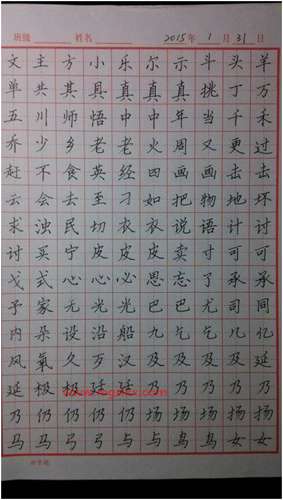 班级 姓名 2015年1月31日
文主方小乐尔示斗头羊
单共其具真真真挑丁万
五川师悟中中年当千
乔少乡老老火周又更过
赶不食英经四画画击击
云会去至刁如把物地坏
求浊民切衣衣说语计讨
讨买宁皮皮皮卖寸可可
戈式心心必思忘了承承
予家无光光巴巴尤司同
内朵设沿船九乞乞几亿
风氧久万汉及及及及延
延极极廷廷乃乃乃乃
乃仍仍仍仍场扬场扬扬
马马弓弓与与鸟鸟女